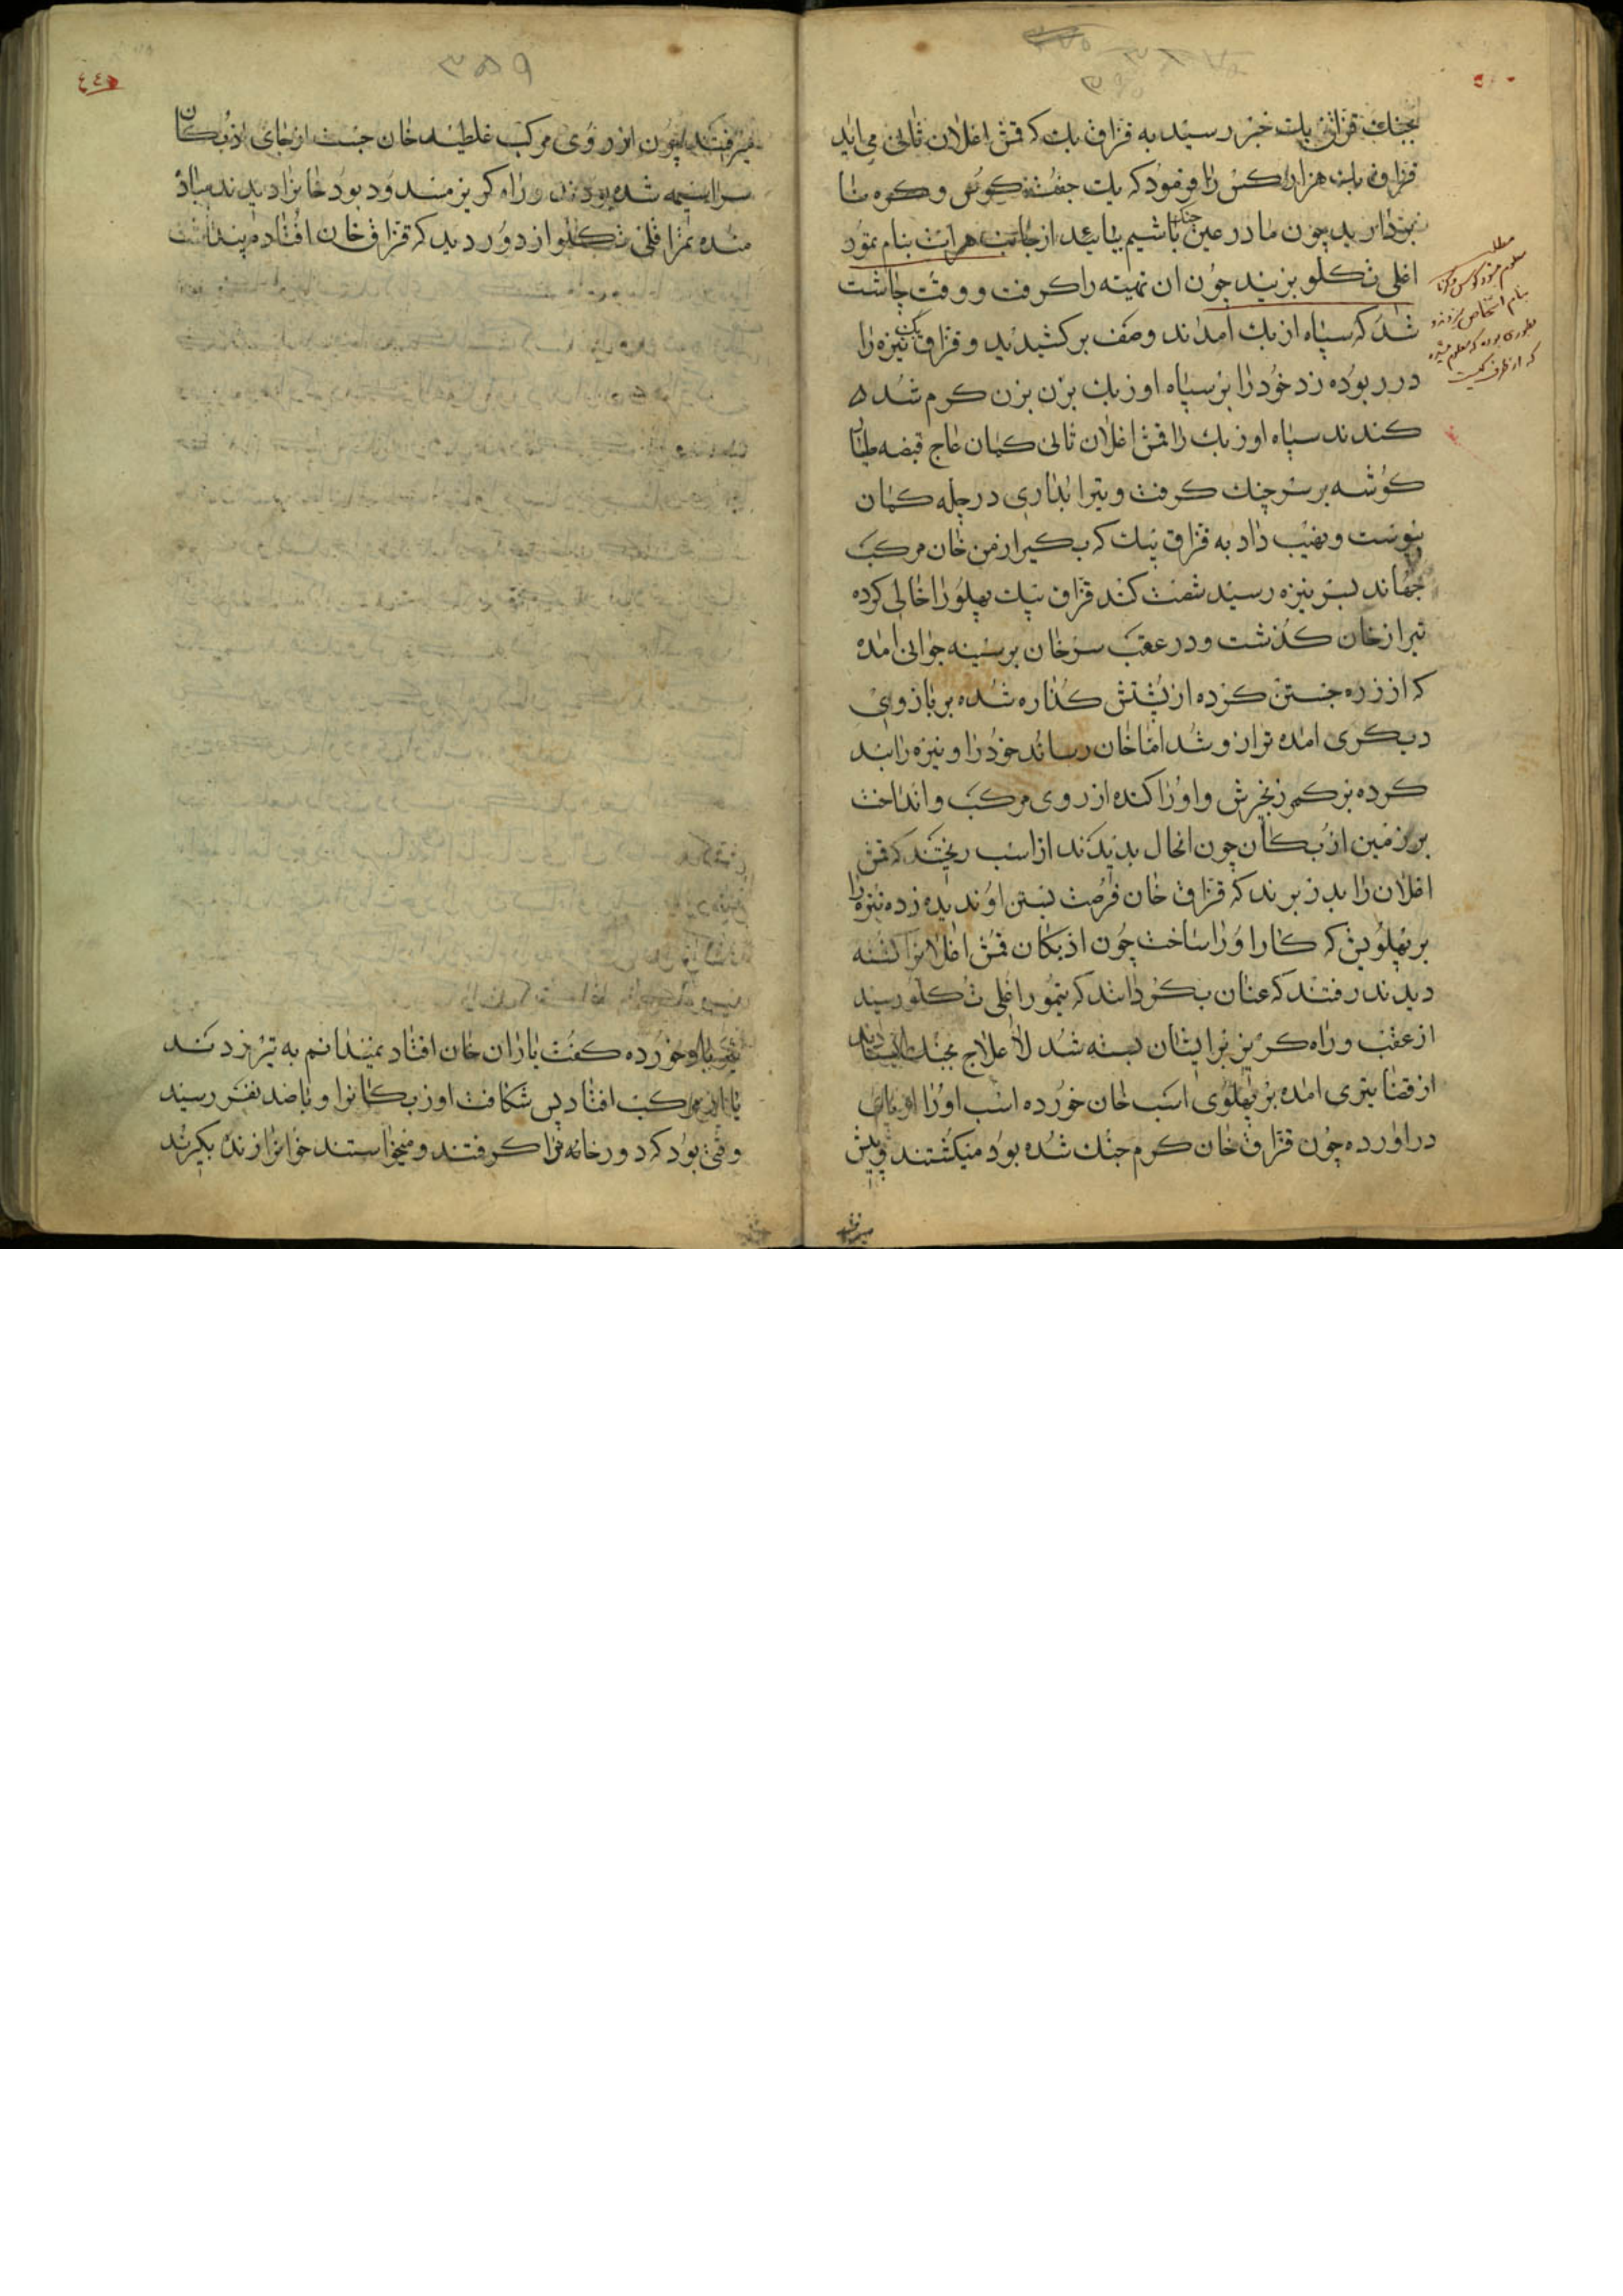 بجنك قزاق بك خبر رسید به قزاق بك كه قمش اغلان ثانی می اید
قزاق بك هزار كس را فرمود كه یك جفت كوس و كره نا
بردارید چون ما در عین جنك باشیم بیائید از جانب هرات بنام تمور
اغلی تكلو بزنید چون ان تهیه را كرفت و وقت چاشت
شد كه سپاه ازبك امداند وصف بركشیدند و قزاق بك نیزه را
در ربوده زد خود را بر سپاه اوزبك بزن بزن كرم شد
كندند سپاه اوزبك را قمش اغلان ثانی كمان عاج قبضه
كوشه بر سر چنك كرفت و تیر ابداری در چله كمان
پیوست و نهیب داد به قزاق بیك كه بكیر از من خان مركب
جهاند بسر نیزه رسید شصت كند قزاق بیك پهلو را خالی كرده
تیر از خان كذشت و در عقب سر خان بر سینه جوانی امده
كه از زره جستن كرده از پشتش كذاره شده بر بازوی
دیكری امده ترازو شد اما خان رساند خود را و نیزه را بند
كرده بر كمر زنجیرش و او را كنده از روی مركب و انداخت
بر زمین ازبكان چون انحال بدیدند از اسب ریختند كه قمش
اغلان را بدر برند كه قزاق خان فرصت بستن او ندیده زده نیزه را
بر پهلویش كه كار او را ساخت چون ازبكان قمش اغلانرا كشته
دیدند رفتند كه عنان بكردانند كه تیمور اغلی تكلو رسید
از عقب و راه كریز برایشان بسته شد لا علاج بجنك
از قضا تیری امده بر پهلوی اسب خان خورده اسب او را از پای
در اورده چون قزاق خان كرم جنك شده بود میكشتند و پیش
میرفتند
مطلب
معلوم میشود كوس و كرنا
بنام اشخاص میزدند و
بطوری بوده كه معلوم میشده
كه از طرف كیست
٣٥٩
میرفتند چون از روی مركب غلطید خان جست از جای ازبكان
سراسیمه شده بودند و راه كریز مسدود بود خانرا دیدند پیاده
شده تمر اغلی تكلو از دور دید كه قزاق خان افتاده پنداشت
خورده كفت یاران خان افتاد نمیدانم به تیر زدند
یا از مركب افتاد پس شكافت اوزبكانرا و با صد نفر رسید
وقتی بود كه دور خانرا كرفتند و میخواستند خانرا زنده بكیرند